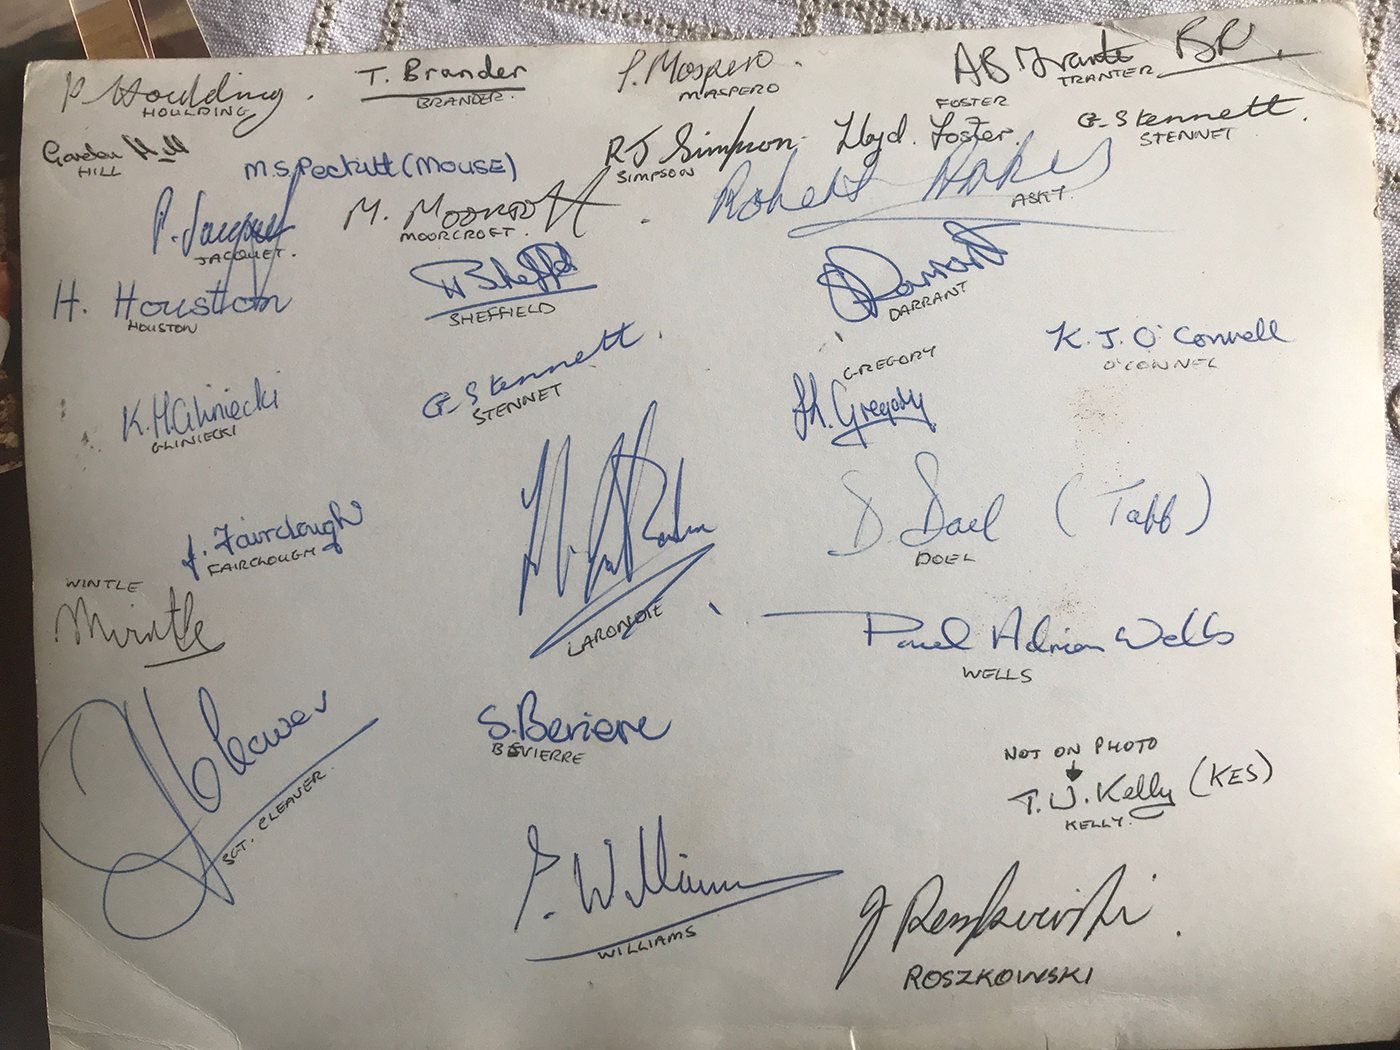 P. Houlding.
HOULDING
T. Brander
BRANDER.
P. Maspero.
MASPERO
AB Trante BR.
TRANTER
Gordon Hill
HILL
M.S. Peckitt (MOUSE)
RJ Simpson.
SIMPSON
FOSTER
Lloyd. Foster.
G. Stennett.
STENNET
P. Jacquet
JACQUET.
M. Moorcroft.
MOORCROFT.
Robert
ASKY.
H. Houston
HOUSTON
Sheffld
SHEFFIELD
Darrant
DARRANT
K.H. Gliniecki
GLINIECKI
G. Stennett.
STENNET
GREGORY
Gregory
K. J. O'Connell
O'CONNEL
J. Fairclough
FAIRCLOUGH
LARONDIE
D. Doel (Taff)
DOEL
WINTLE
Wintle
Paul Adrian Wells
WELLS
Cleaver
SGT. CLEAVER.
S. Beviere
BEVIERRE
NOT ON PHOTO
T. W. Kelly (KES)
KELLY.
Williams
WILLIAMS
J Roszkowski.
ROSZKOWSKI